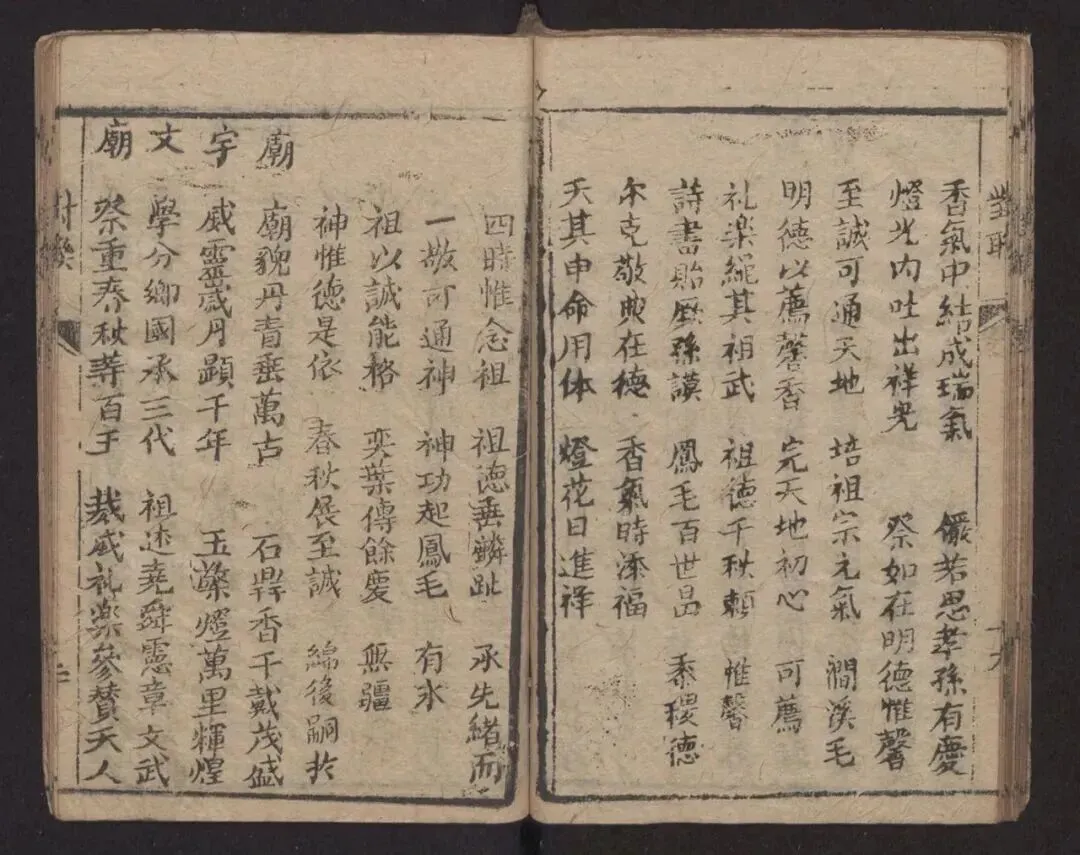 對聯
香氣中結成瑞氣 儼若思孝孫有慶
燈光內吐出祥光 祭如在明德惟馨
至誠可通天地 培祖宗元氣 澗溪毛
明德以薦馨香 完天地初心 可薦
礼楽繩其祖武 祖德千秋賴 惟馨
詩書貽厥孫謨 鳳毛百世昌 黍稷德
尔克敬典在德 香氣時添福
天其申命用休 燈花日進祥
四時惟念祖 祖德垂麟趾 承先緒而
一敬可通神 神功起鳳毛 有永
祖以誠能格 奕葉傳餘慶 無疆
神惟德是依 春秋展至誠 綿後嗣於
廟 廟貌丹青垂萬古 石鼎香千載茂盛
宇 威靈歲月顕千年 玉蕖燈萬里輝煌
文 學分鄉國承三代 祖述堯舜憲章文武
廟 祭重春秋等百王 裁成礼楽參賛天人